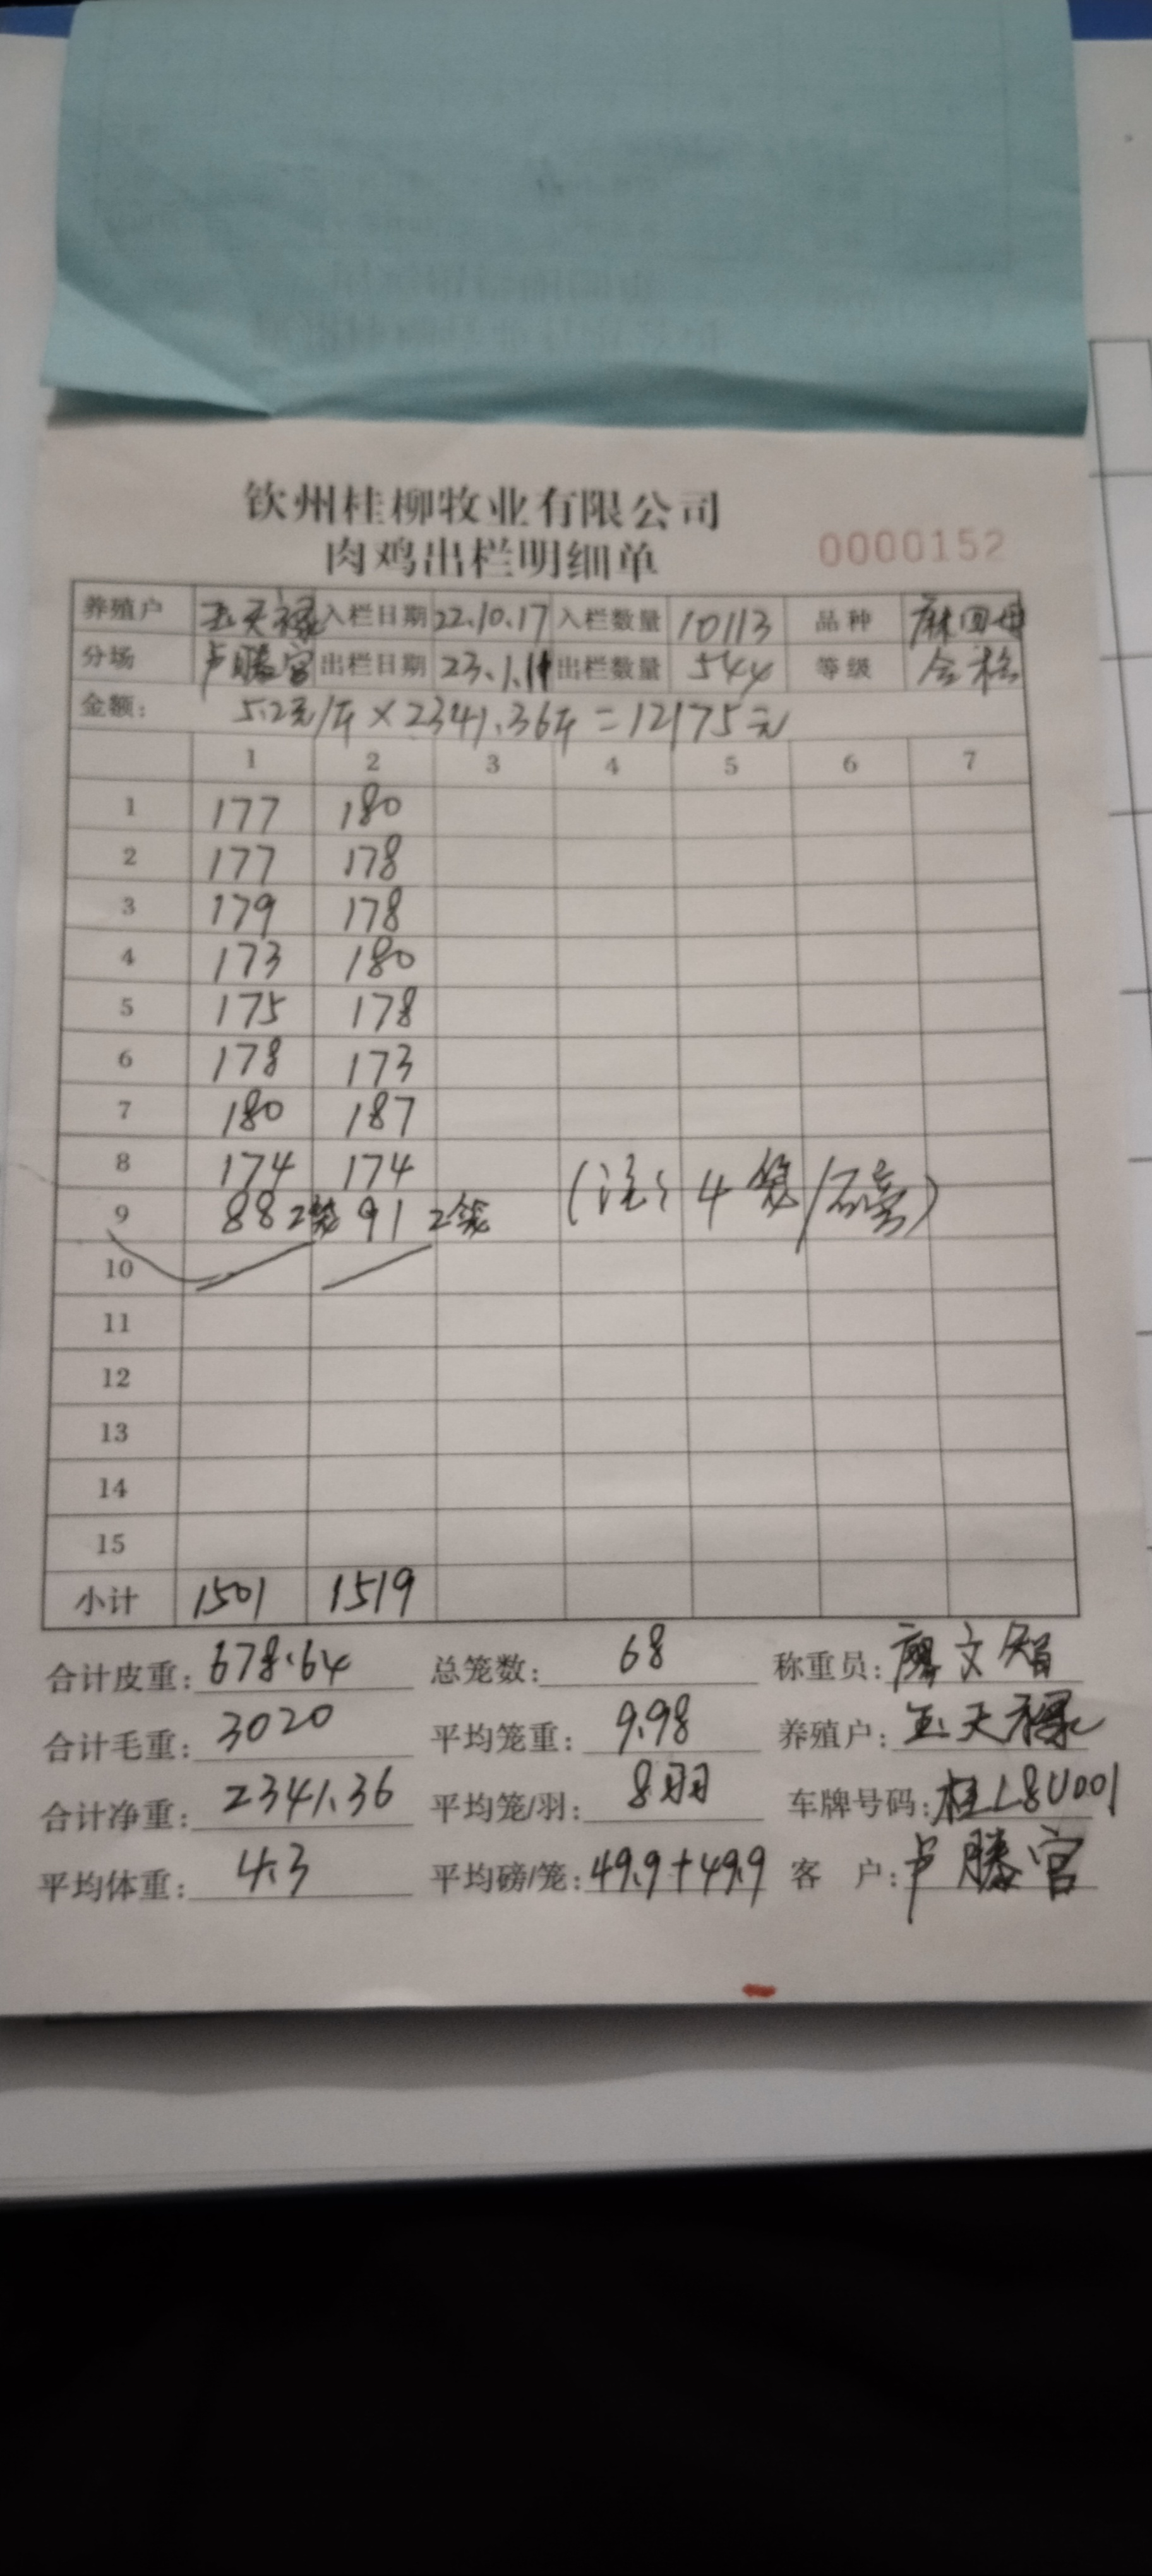 钦州桂柳牧业有限公司
肉鸡出栏明细单 0000152
养殖户 玉天禄 入栏日期 22.10.17 入栏数量 10113 品种
分场 卢滕宫 出栏日期 23.1.11 出栏数量 544 等级 合格
金额: 5.2元/斤×2341.36斤=12175元
1 2 3 4 5 6 7
1 177 180
2 177 178
3 179 178
4 173 180
5 175 178
6 178 173
7 180 187
8 174 174 (注: 4笼/磅)
9 88 2笼 91 2笼
10
11
12
13
14
15
小计 1501 1519
合计皮重: 678.64 总笼数: 68 称重员: 廖文智
合计毛重: 3020 平均笼重: 9.98 养殖户: 玉天禄
合计净重: 2341.36 平均笼/羽: 8羽 车牌号码: 桂L8U001
平均体重: 4.3 平均磅/笼: 49.9+49.9 客 户: 卢滕宫